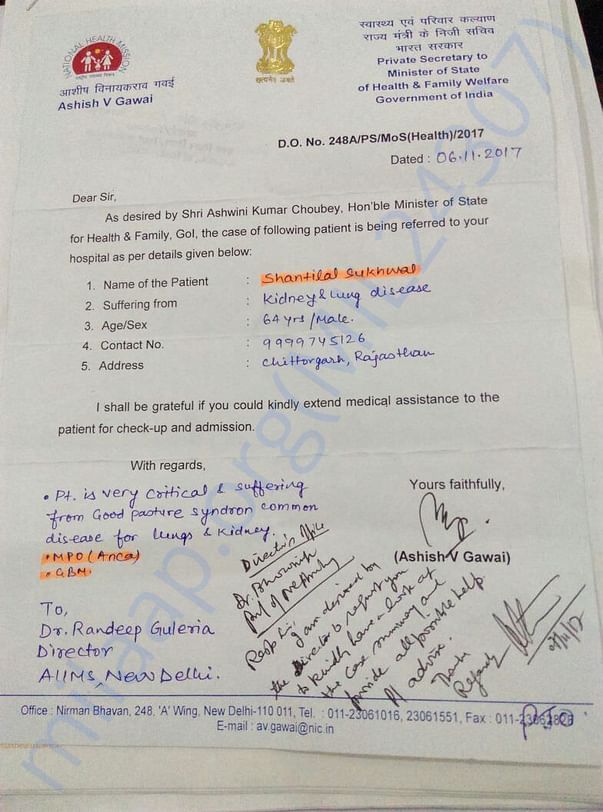 NATIONAL HEALTH MISSION
आशीष विनायकराव गवई
Ashish V Gawai
सत्यमेव जयते
स्वास्थ्य एवं परिवार कल्याण
राज्य मंत्री के निजी सचिव
भारत सरकार
Private Secretary to
Minister of State
of Health & Family Welfare
Government of India
D.O. No. 248A/PS/MoS(Health)/2017
Dated : 06.11.2017
Dear Sir,
As desired by Shri Ashwini Kumar Choubey, Hon'ble Minister of State
for Health & Family, GoI, the case of following patient is being referred to your
hospital as per details given below:
1. Name of the Patient : Shantilal Sukhwal
2. Suffering from : Kidney & Lung disease
3. Age/Sex : 64 yrs/Male.
4. Contact No. : 9999745126
5. Address : Chittorgarh, Rajasthan
I shall be grateful if you could kindly extend medical assistance to the
patient for check-up and admission.
With regards,
• Pt. is very critical & suffering
from Good pasture syndron common
disease for lungs & kidney.
• MPO (Anca)
• GBM
Yours faithfully,
(Ashish V Gawai)
To,
Dr. Randeep Guleria
Director
AIIMS, New Delhi.
Director's Office
Dr. Bhowmik
Resp Sir,
I am desired by
the Director to request you
to kindly have a look at
the case summary and
provide all possible help
advise.
Thanks
Regards
Office : Nirman Bhavan, 248, 'A' Wing, New Delhi-110 011, Tel. : 011-23061016, 23061551, Fax : 011-23062828
E-mail : av.gawai@nic.in
P.T.O.
milaap.org(MIL24307)